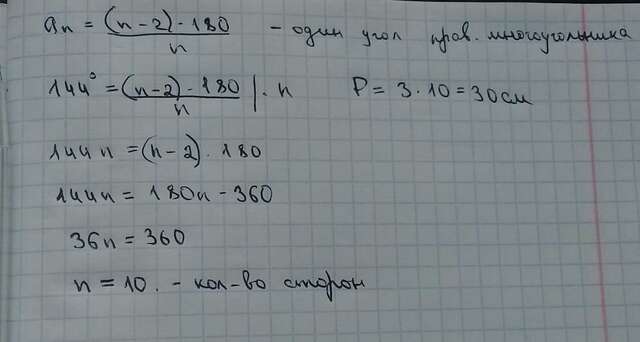 aₙ = (n-2)·180/n - один угол прав. многоугольника
144° = (n-2)·180/n |·n P = 3·10 = 30см
144n = (n-2)·180
144n = 180n - 360
36n = 360
n = 10. - кол-во сторон